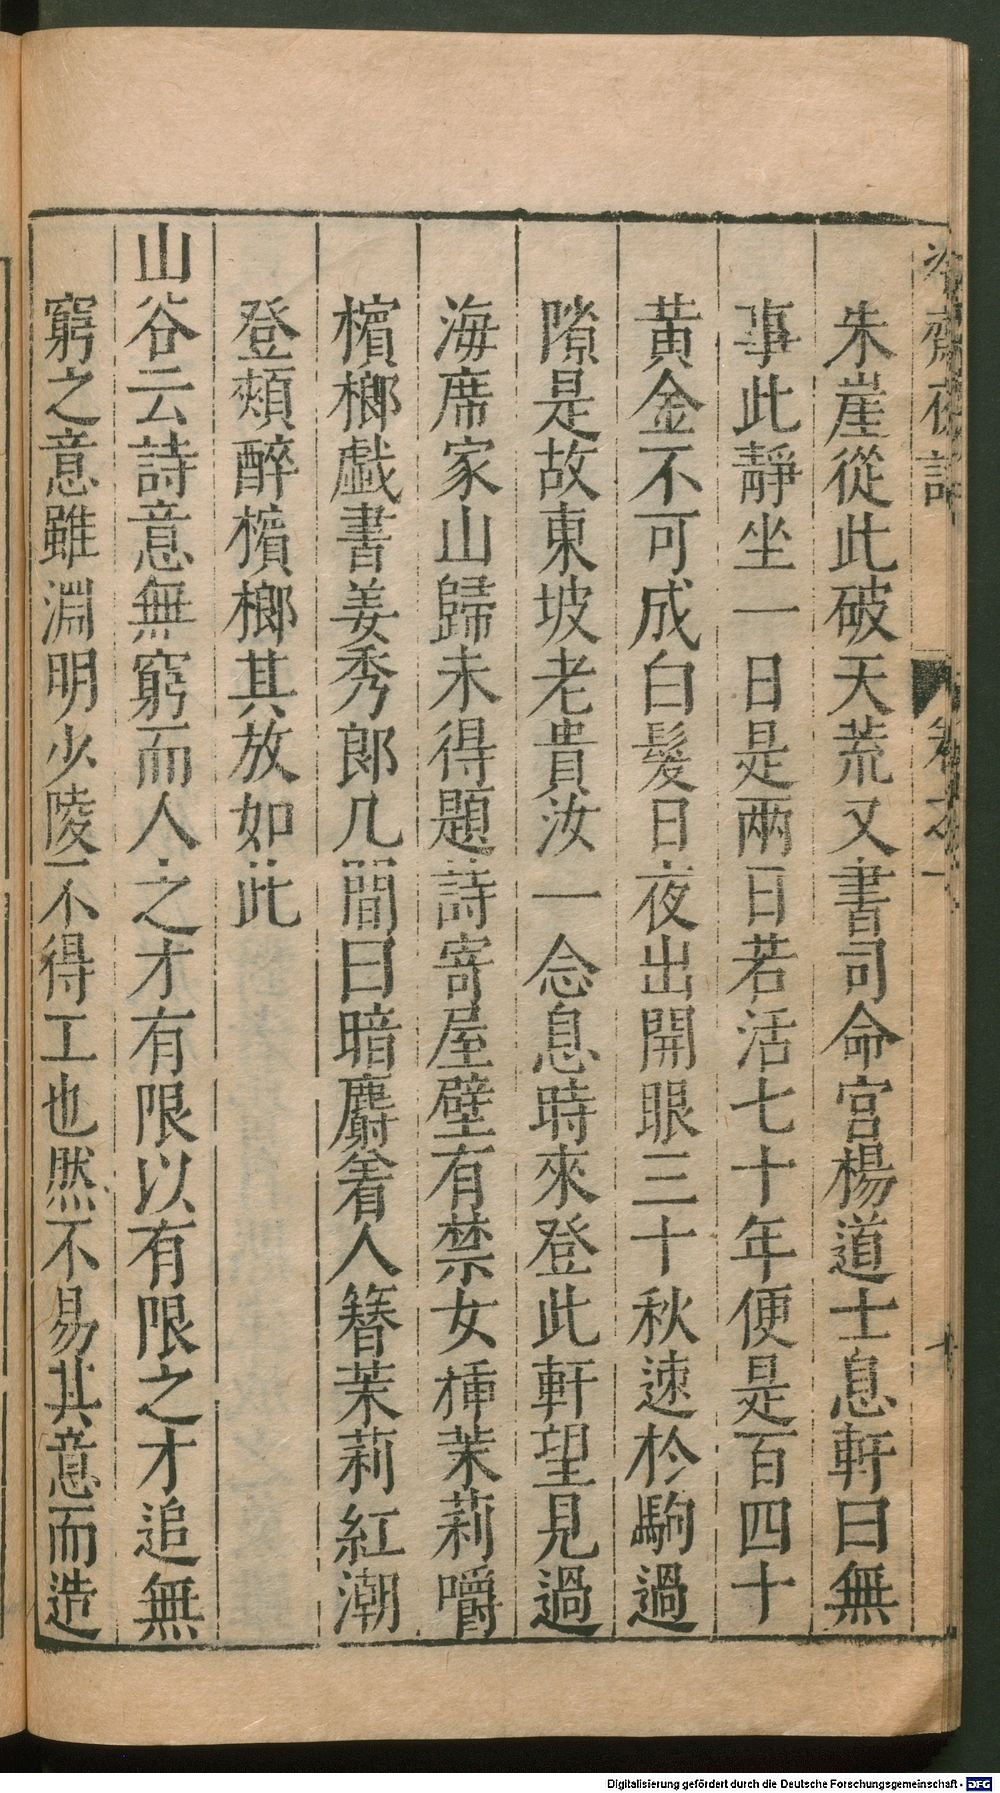 冷齋夜話 卷之一
朱崖從此破天荒又書司命宮楊道士息軒曰無
事此靜坐一日是兩日若活七十年便是百四十
黃金不可成白髮日夜出開眼三十秋速於駒過
隙是故東坡老貴汝一念息時來登此軒望見過
海席家山歸未得題詩寄屋壁有禁女揷茉莉嚼
檳榔戱書姜秀郎几間曰暗麝着人簪茉莉紅潮
登頰醉檳榔其放如此
山谷云詩意無窮而人之才有限以有限之才追無
窮之意雖淵明少陵不得工也然不易其意而造
Digitalisierung gefördert durch die Deutsche Forschungsgemeinschaft - DFG